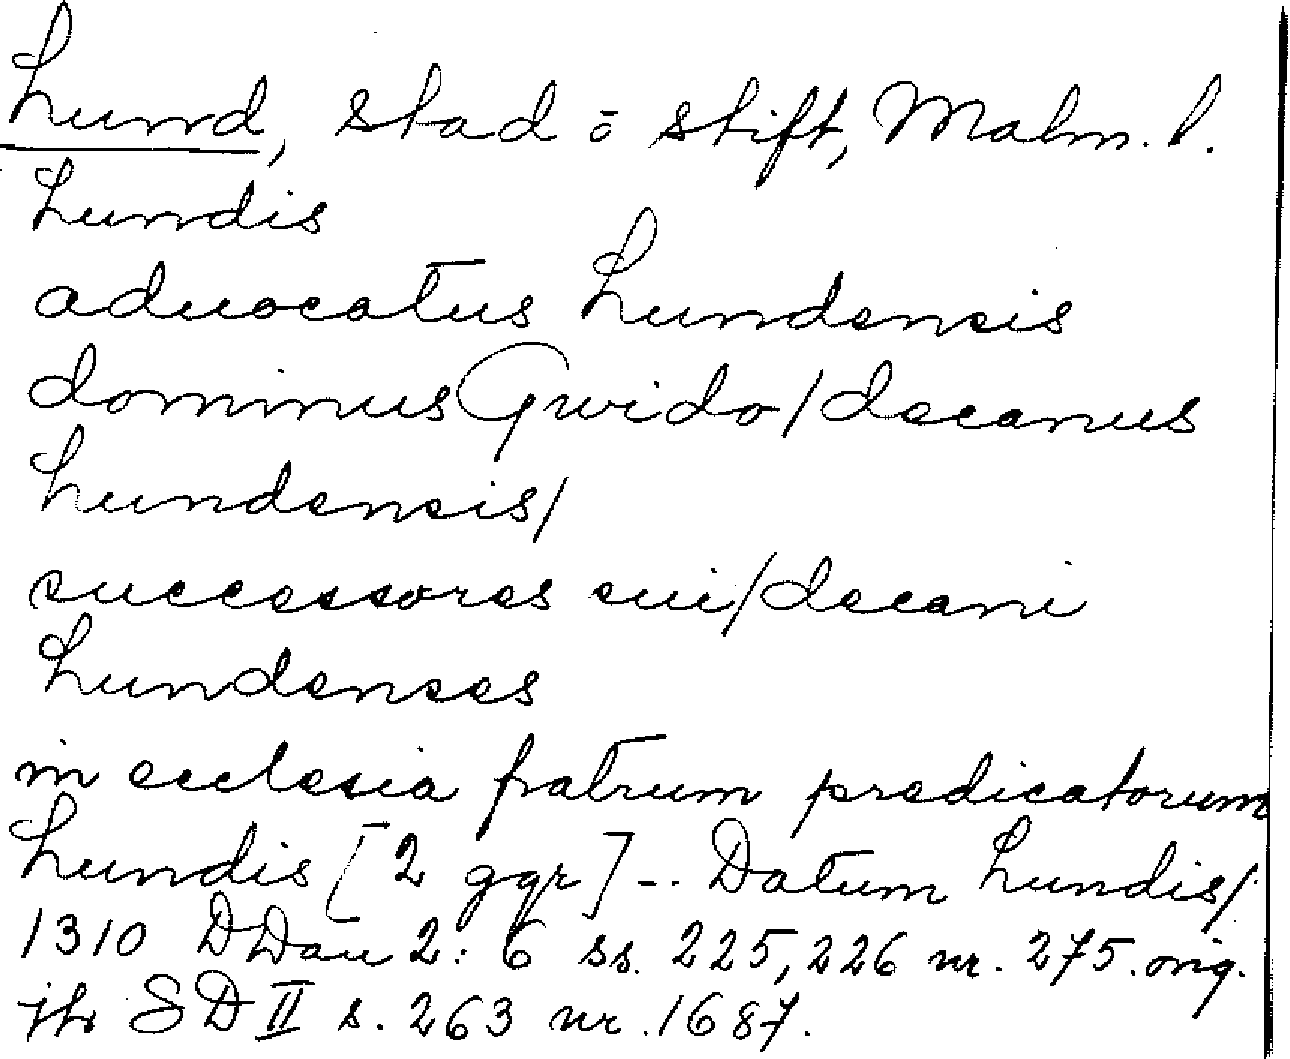 Lund, stad o stift, Malm. l.
Lundis
aduocatus Lundensis
dominus Gwido/decanus
Lundensis/
successores sui/decani
Lundenses
in ecclesia fratrum predicatorum
Lundis [2 ggr] -.. Datum Lundis/.
1310 DDan 2: 6 ss. 225, 226 nr. 275. orig.
jfr SD II s. 263 nr. 1687.